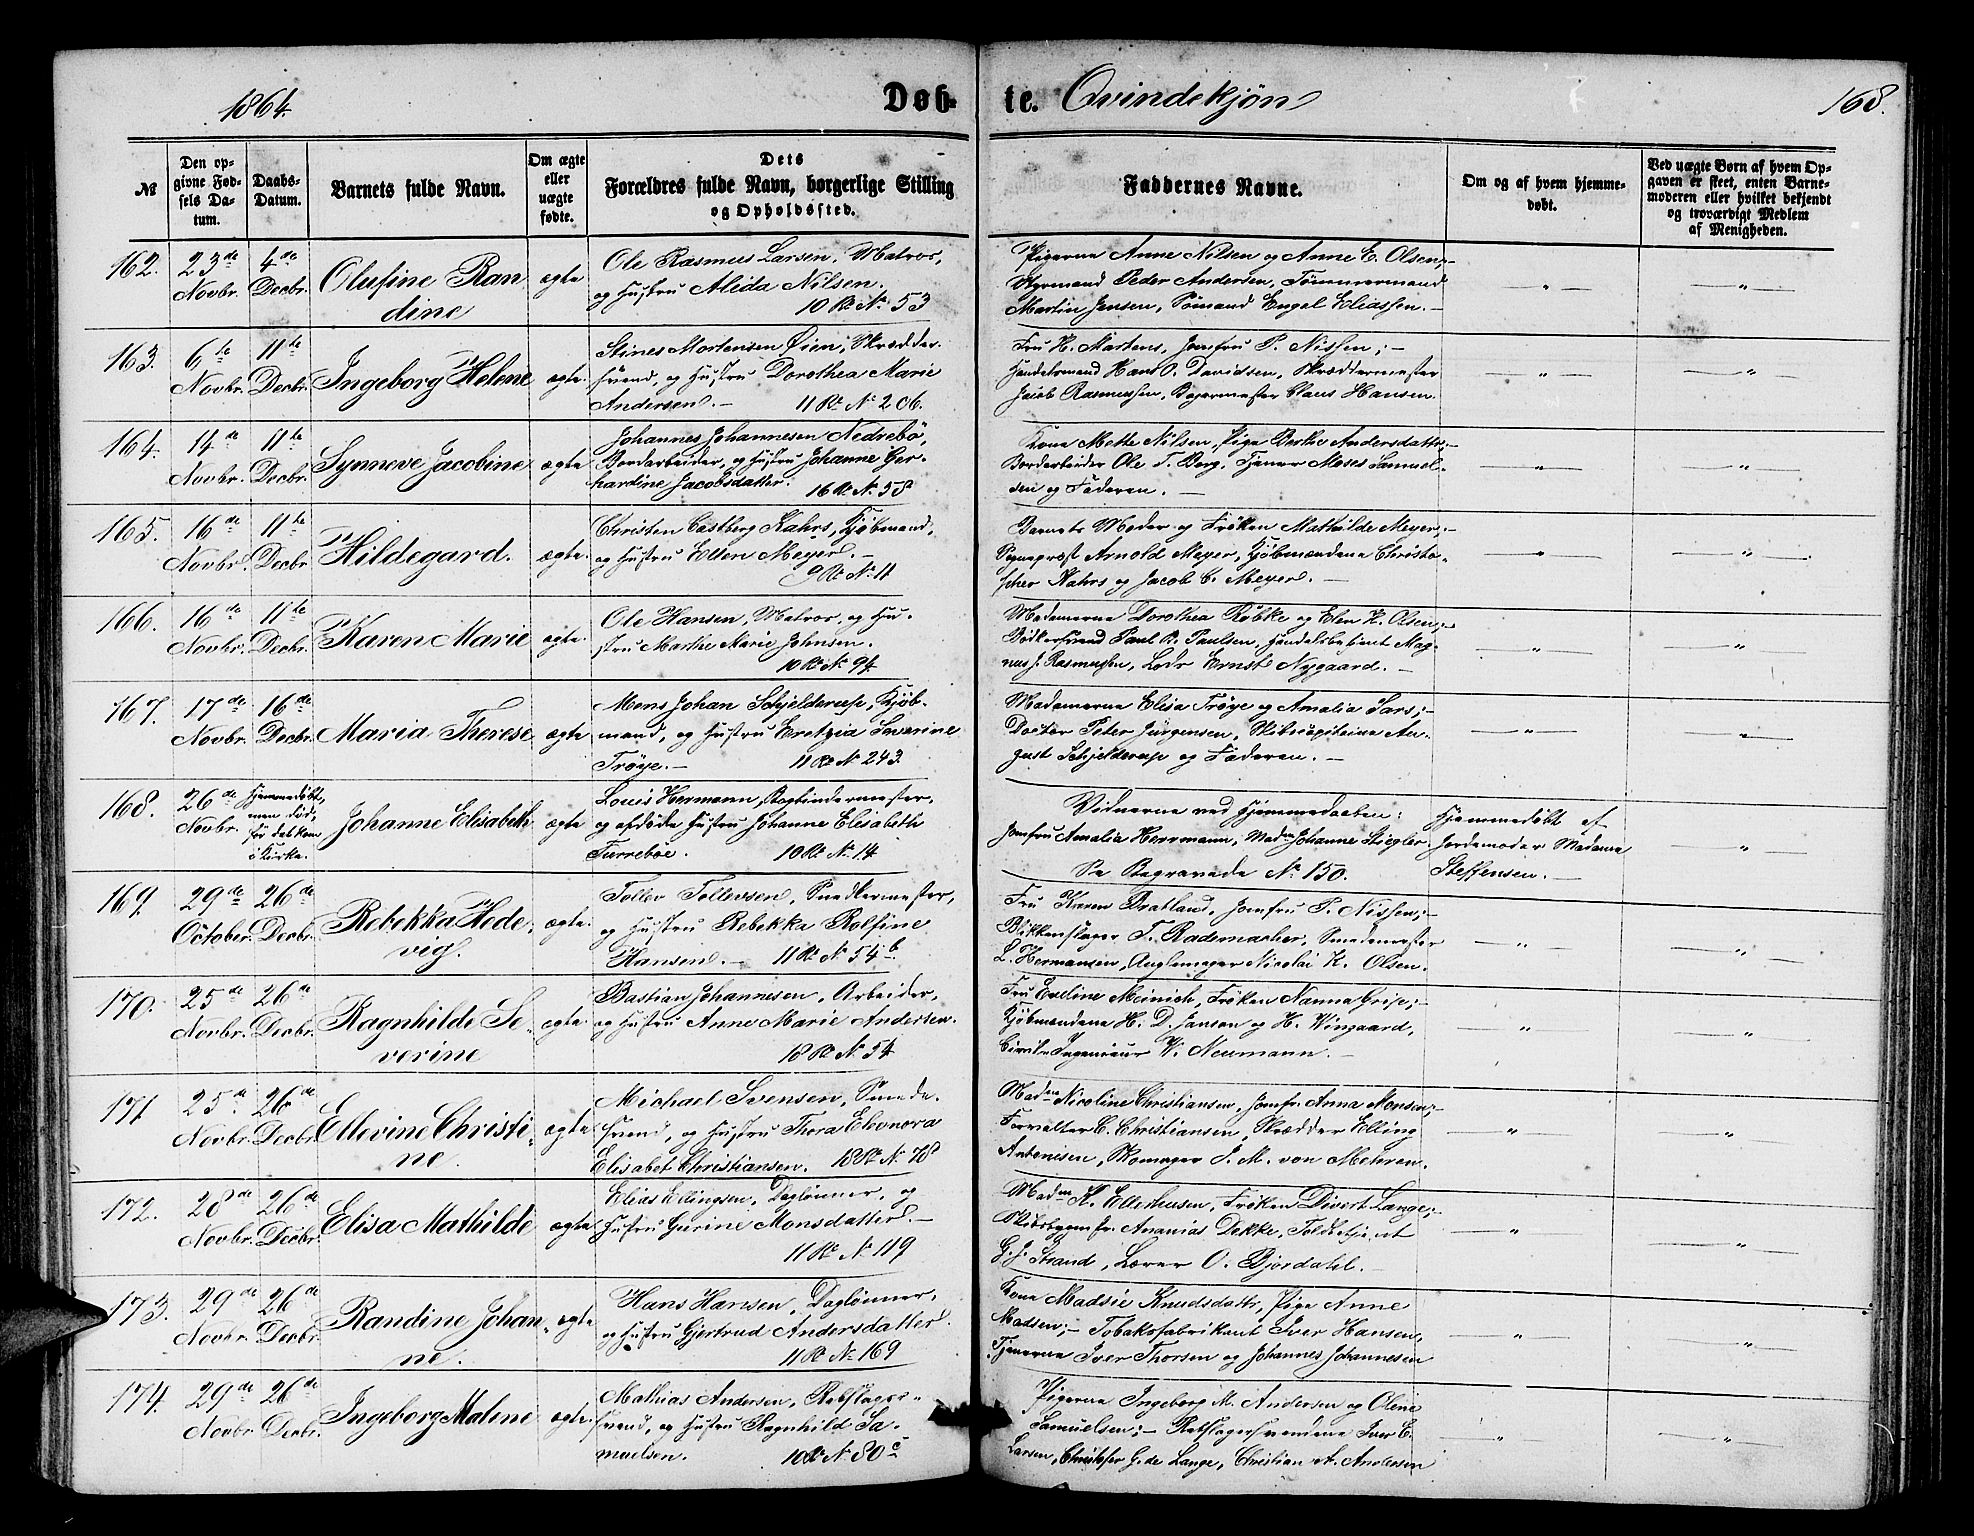 1864.
Døb-
te. Qvindekjøn
168.
№
Den op-
givne Fød-
sels Da-
tum.
Daabs-
Datum.
Barnets fulde Navn.
Om ægte
eller
uægte
fødte.
Dets
Forældres fulde Navn, borgerlige Stilling
og Opholdssted.
Faddernes Navne.
Om og af hvem hjemme-
døbt.
Ved uægte Børn af hvem Op-
gaven er skeet, enten Barne-
moderen eller hvilket bekjendt
og troværdigt Medlem
af Menigheden.
162.
23de
Novbr.
4de
Decbr.
Olufine Ran
dine
ægte
Ole Rasmus Larsen, Matros,
og Hustru Alida Nilsen.
10 Rd No 53
Pigerne Anne Nilsen og Anne E. Olsen;-
Styrmand Peder Andersen, Tømmermand
Martin Jensen, Sømand Engel Eliassen.-
163.
6te
Novbr.
11te
Decbr.
Ingeborg Helene
ægte.
Stines Mortensen Øien, Skrædder-
svend, og Hustru Dorothea Marie
Andersen.- 11 Rd No 206.
Fru H. Martens, Jomfru P. Nissen;-
Handelsmand Hans O. Davidsen, Skræddermester
Jacob Rasmussen, Bagermester Claus Hansen.
164.
14de
Novbr.
11te
Decbr.
Synneve Jacobine
ægte
Johannes Johannesen Nedrebö,
Bordarbeider, og Hustru Johanne Ger-
hardine Jacobsdatter. 16 Rd No 58
Kone Mette Nilsen, Pige Berthe Andersdatter;-
Bordarbeider Ole T. Berg, Tjener Moses Samuel-
sen og Faderen.-
165.
16de
Novbr.
11te
Decbr
Hildegard.
ægte.
Christen Castberg Kahrs, Kjöbmand,
og Hustru Ellen Meyer.-
9 Rd No 11
Barnets Moder og Frøken Mathilde Meyer;-
Sognepræst Arnold Meyer, Kjöbmændene Christo-
pher Kahrs og Jacob C. Meyer.-
166.
16de
Novbr.
11te
Decbr.
Karen Marie
ægte.
Ole Hansen, Matros, og Hu-
stru Marthe Marie Johnsen.
10 Rd No 94.
Madamerne Dorothea Röbke og Elen K. Olsen;-
Bödkersvend Paul B. Paulsen, Handelsbetjent Mag-
nus J. Rasmussen, Lods Ernst Nygaard.-
167.
17de
Novbr.
16de
Decbr.
Maria Therese
ægte
Mons Johan Schjelderup, Kjöb-
mand, og Hustru Eretzia Severine
Trøye.- 11 Rd No 243.
Madamerne Elisa Trøye og Amalia Sars;-
Doctor Peter Jürgensen, Skibscapitaine Au-
gust Schjelderup og Faderen.-
168.
26de
Novbr.
Hjemmedøbt,
men død,
før det kom
i Kirke.
Johanne Elisabeth
ægte
Louis Hermann, Bogbindermester,
og afdöde Hustru Johanne Elisabeth
Turreböe. 10 Rd No 14
Vidnerne ved Hjemmedaaben:
Jomfru Amalia Herrmann, Madm Johanne Stiegler.
Se Begravede No 150.
Hjemmedøbt af
Jordemoder Madame
Steffensen.-
169.
29de
October.
26de
Decbr.
Rebekka Hede-
vig.
ægte.
Tollev Tollevsen, Snedkermester,
og Hustru Rebekka Rolfine
Hansen.- 11 Rd No 54b
Fru Karen Bratland, Jomfru P. Nissen;-
Blikkenslager T. Rademacher, Smedemester
L. Hermansen, Anglemager Nicolai K. Olsen.
170.
25de
Novbr.
26de
Decbr.
Ragnhilde Se-
verine
ægte
Bastian Johannesen, Arbeider,
og Hustru Anne Marie Andersen.
18 Rd No 54
Fru Eveline Meinich, Frøken Nanna Grip;-
Kjöbmændene H. D. Janson og H. Wingaard,
Civil-Ingenieur W. Neumann.-
171
25de
Novbr.
26de
Decbr.
Ellevine Christi-
ne.
ægte
Michael Svensen, Smede-
svend, og Hustru Thora Eleonora
Elisabet Christiansen. 18 Rd No 78
Madm Nicoline Christiansen, Jomfr. Anna Monsen;-
Forvalter C. Christiansen, Skrædder Elling
Antonesen, Skomager J. M. von Mehren.
172.
28de
Novbr.
26de
Decbr.
Elisa Mathilde
ægte
Elias Ellingsen, Daglönner, og
Hustru Gurine Monsdatter.-
11 Rd No 119
Madm K. Ellerhusen, Frøken Divert Lange;-
Skibsbyggmstr. Ananias Dekke, Toldbetjent
G. J. Strand, Lærer O. Bjordahl.-
173.
29de
Novbr.
26de
Decbr.
Randine Johan-
ne.
ægte
Hans Hansen, Daglönner,
og Hustru Gjertrud Andersdatter.
11 Rd No 169
Kone Madsie Knudsdattr, Pige Anne
Madsen;- Tobaksfabrikant Iver Hansen,
Tjenerne Iver Thorsen og Johannes Johannesen
174.
29de
Novbr.
26de
Decbr.
Ingeborg Malene
ægte.
Mathias Andersen, Rebslager-
svend, og Hustru Ragnhild Sa-
muelsen. 10 Rd No 80c
Pigerne Ingeborg M. Andersen og Oline
Samuelsen;- Rebslagersvendene Iver E.
Larsen, Christofer G. de Lange, Christian A. Andersen